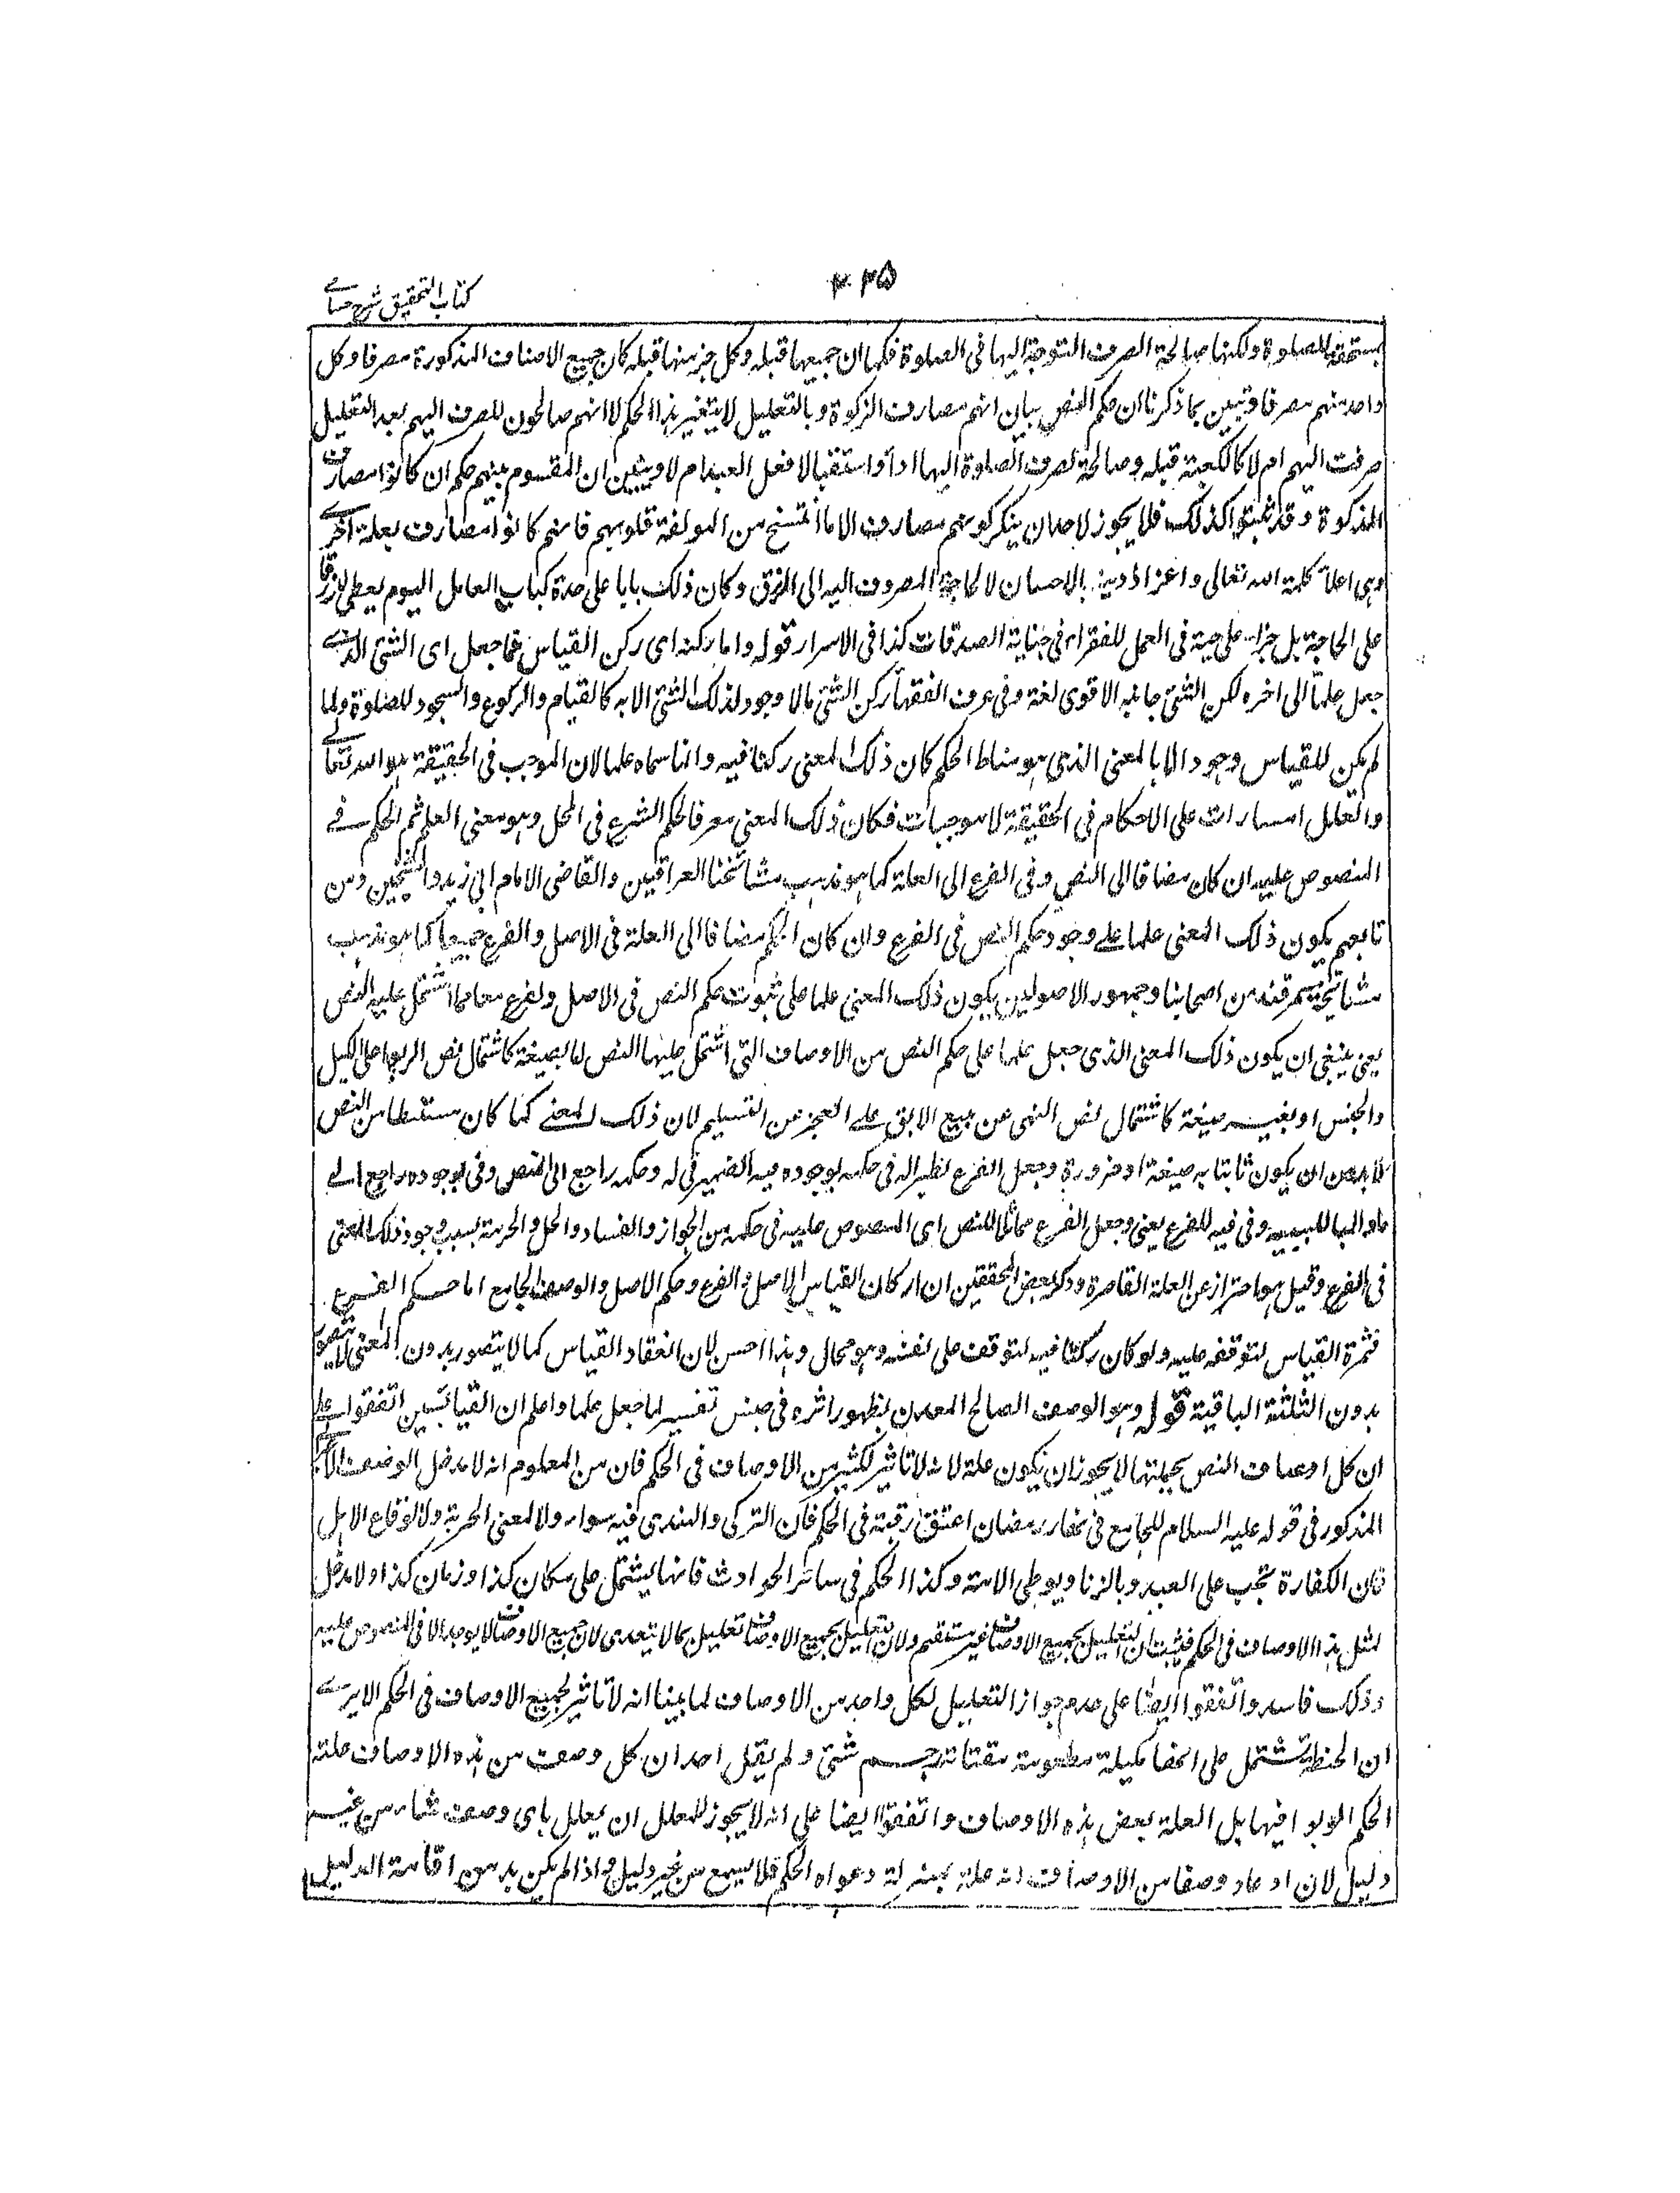 كتاب التحقيق شرح حسامے
۲۳۵
مستحقة للصلوة ولكنها صالحة الصرف التوجه اليها فى الصلوة فكما ان جميعها قبلة وكل جزء منها قبلة كان جميع الاصناف المذكورة مصرفا وكل
واحد منهم مصرفا وتبين بما ذكرنا ان حكم النص بيان انهم مصارف الزكوة وبالتعليل لا يتغير هذا الحكم لا انهم صالحون للصرف اليهم بعد التعليل
صرفت اليهم ام لا كالكعبة قبلة وصالحة لصرف الصلوة اليها اداً واستقبالا فعل العبد ام لا ويتبين ان المقسوم بينهم حكم ان كانوا مصارف
المذكوة وقد ثبتوا كذلك فلا يجوز لاحد ان ينكر كونهم مصارف الا ما انتسخ من المولفة قلوبهم فانهم كانوا مصارف بعلة اخرے
وهى اعلاً كلمة الله تعالى واعزاز دينه بالاحسان لا لحاجة المصروف اليه الى الرزق وكان ذلك بابا على حدة كباب العامل اليوم يعطى لا رزقا
على الحاجة بل جزاء على حية فى العمل للفقراء فى جناية الصدقات كذا فى الاسرار قوله واما ركنه اى ركن القياس فما جعل اى الشئ الذے
جعل علماً الى اخره لكن الشئ جانبه الاقوى لغة وفى عرف الفقهاً ركن الشئ مالا وجود لذلك الشئ الا به كالقيام والركوع والسجود للصلوة ولما
لم يكن للقياس وجود الا بالمعنى الذى هو مناط الحكم كان ذلك المعنى ركنا فيه وانما سماه علما لان الموجب فى الحقيقة هو الله تعالے
والعلل امارات على الاحكام فى الحقيقة لا موجبات فكان ذلك المعنى معرفا لحكم الشرع فى المحل وهو معنى العلم ثم الحكم فے
المنصوص عليه ان كان مضافا الى النص وفى الفرع الى العلة كما هو مذهب مشائخنا العراقيين والقاضى الامام ابى زيد والشيخين ومن
تابعهم يكون ذلك المعنى علما علے وجود حكم النص فى الفرع وان كان الحكم مضافا الى العلة فى الاصل والفرع جميعا كما هو مذهب
مشائخ سمرقند من اصحابنا وجمهور الاصوليين يكون ذلك المعنى علما على ثبوت حكم النص فى الاصل والفرع معا مما اشتمل عليه النص
يعنى ينبغى ان يكون ذلك المعنى الذى جعل علما على حكم النص من الاوصاف التى اشتمل عليها النص اما بصيغة كاشتمال نص الربوا على الكيل
والجنس او بغير صيغة كاشتمال نص النهى عن بيع الابق علے العجز عن التسليم لان ذلك المعنے لما كان مستنبطا من النص
لا بد من ان يكون ثابتا به صيغة او ضرورة وجعل الفرع نظيرا له فى حكمه بوجوده فيه الضمير فى له وحكمه راجع الى النص وفى بوجوده راجع الے
ما والبا للسببية وفى فيه للفرع يعنى وجعل الفرع مماثلا للنص اى المنصوص عليه فى حكمه من الجواز والفساد والحل والحرمة بسبب وجود ذلك المعنى
فى الفرع وقيل هو احتراز عن العلة القاصرة وذكر بعض المحققين ان اركان القياس الاصل والفرع وحكم الاصل والوصف الجامع اما حكم الفرع
فثمرة القياس لتوقفه عليه ولو كان ركنا فيه لتوقف على نفسه وهو محال وهذا احسن لان انعقاد القياس كما لا يتصور بدون المعنى لا يتصور
بدون الثلثة الباقية قوله وهو الوصف الصالح المعدل بظهور اثره فى جنس تفسير لما جعل علما واعلم ان القيائسين اتفقوا علے
ان كل اوصاف النص بجملتها لا يجوز ان يكون علة لانه لا تاثير لكثير من الاوصاف فى الحكم فان من المعلوم انه لا مدخل الوصف
المذكور فى قوله عليه السلام للجامع فى نهار رمضان اعتق رقبة فى الحكم فان التركى والهندى فيه سواء ولا لمعنى الحرية ولا لوقاع الاهل
فان الكفارة تجب على العبد وبالزنا وبوطى الامة وكذا الحكم فى سائر الحوادث فانها يشتمل على مكان كذا وزمان كذا ولا مدخل
لمثل هذا الاوصاف فى الحكم فيثبت ان التعليل بجميع الاوصاف غير مستقيم ولان التعليل بجميع الاوصاف تعليل بما لا يتعدى لان جميع الاوصاف لا يوجد الا فى المنصوص عليه
وذلك فاسد واتفقوا ايضا على عدم جواز التعليل بكل واحد من الاوصاف لما بينا انه لا تاثير لجميع الاوصاف فى الحكم الا يرے
ان الحنطة تشتمل على انها مكيلة مطعومة مقتاتة جسم شئ ولم يقل احد ان كل وصف من هذه الاوصاف علة
الحكم الربوا فيها بل العلة بعض هذه الاوصاف واتفقوا ايضا على انه لا يجوز للمعلل ان يعلل باى وصف شاء من غير
دليل لان ادعاء وصفا من الاوصاف انه علة بمنزلة دعواه الحكم فلا يسمع من غير دليل واذا لم يكن بد من اقامة الدليل